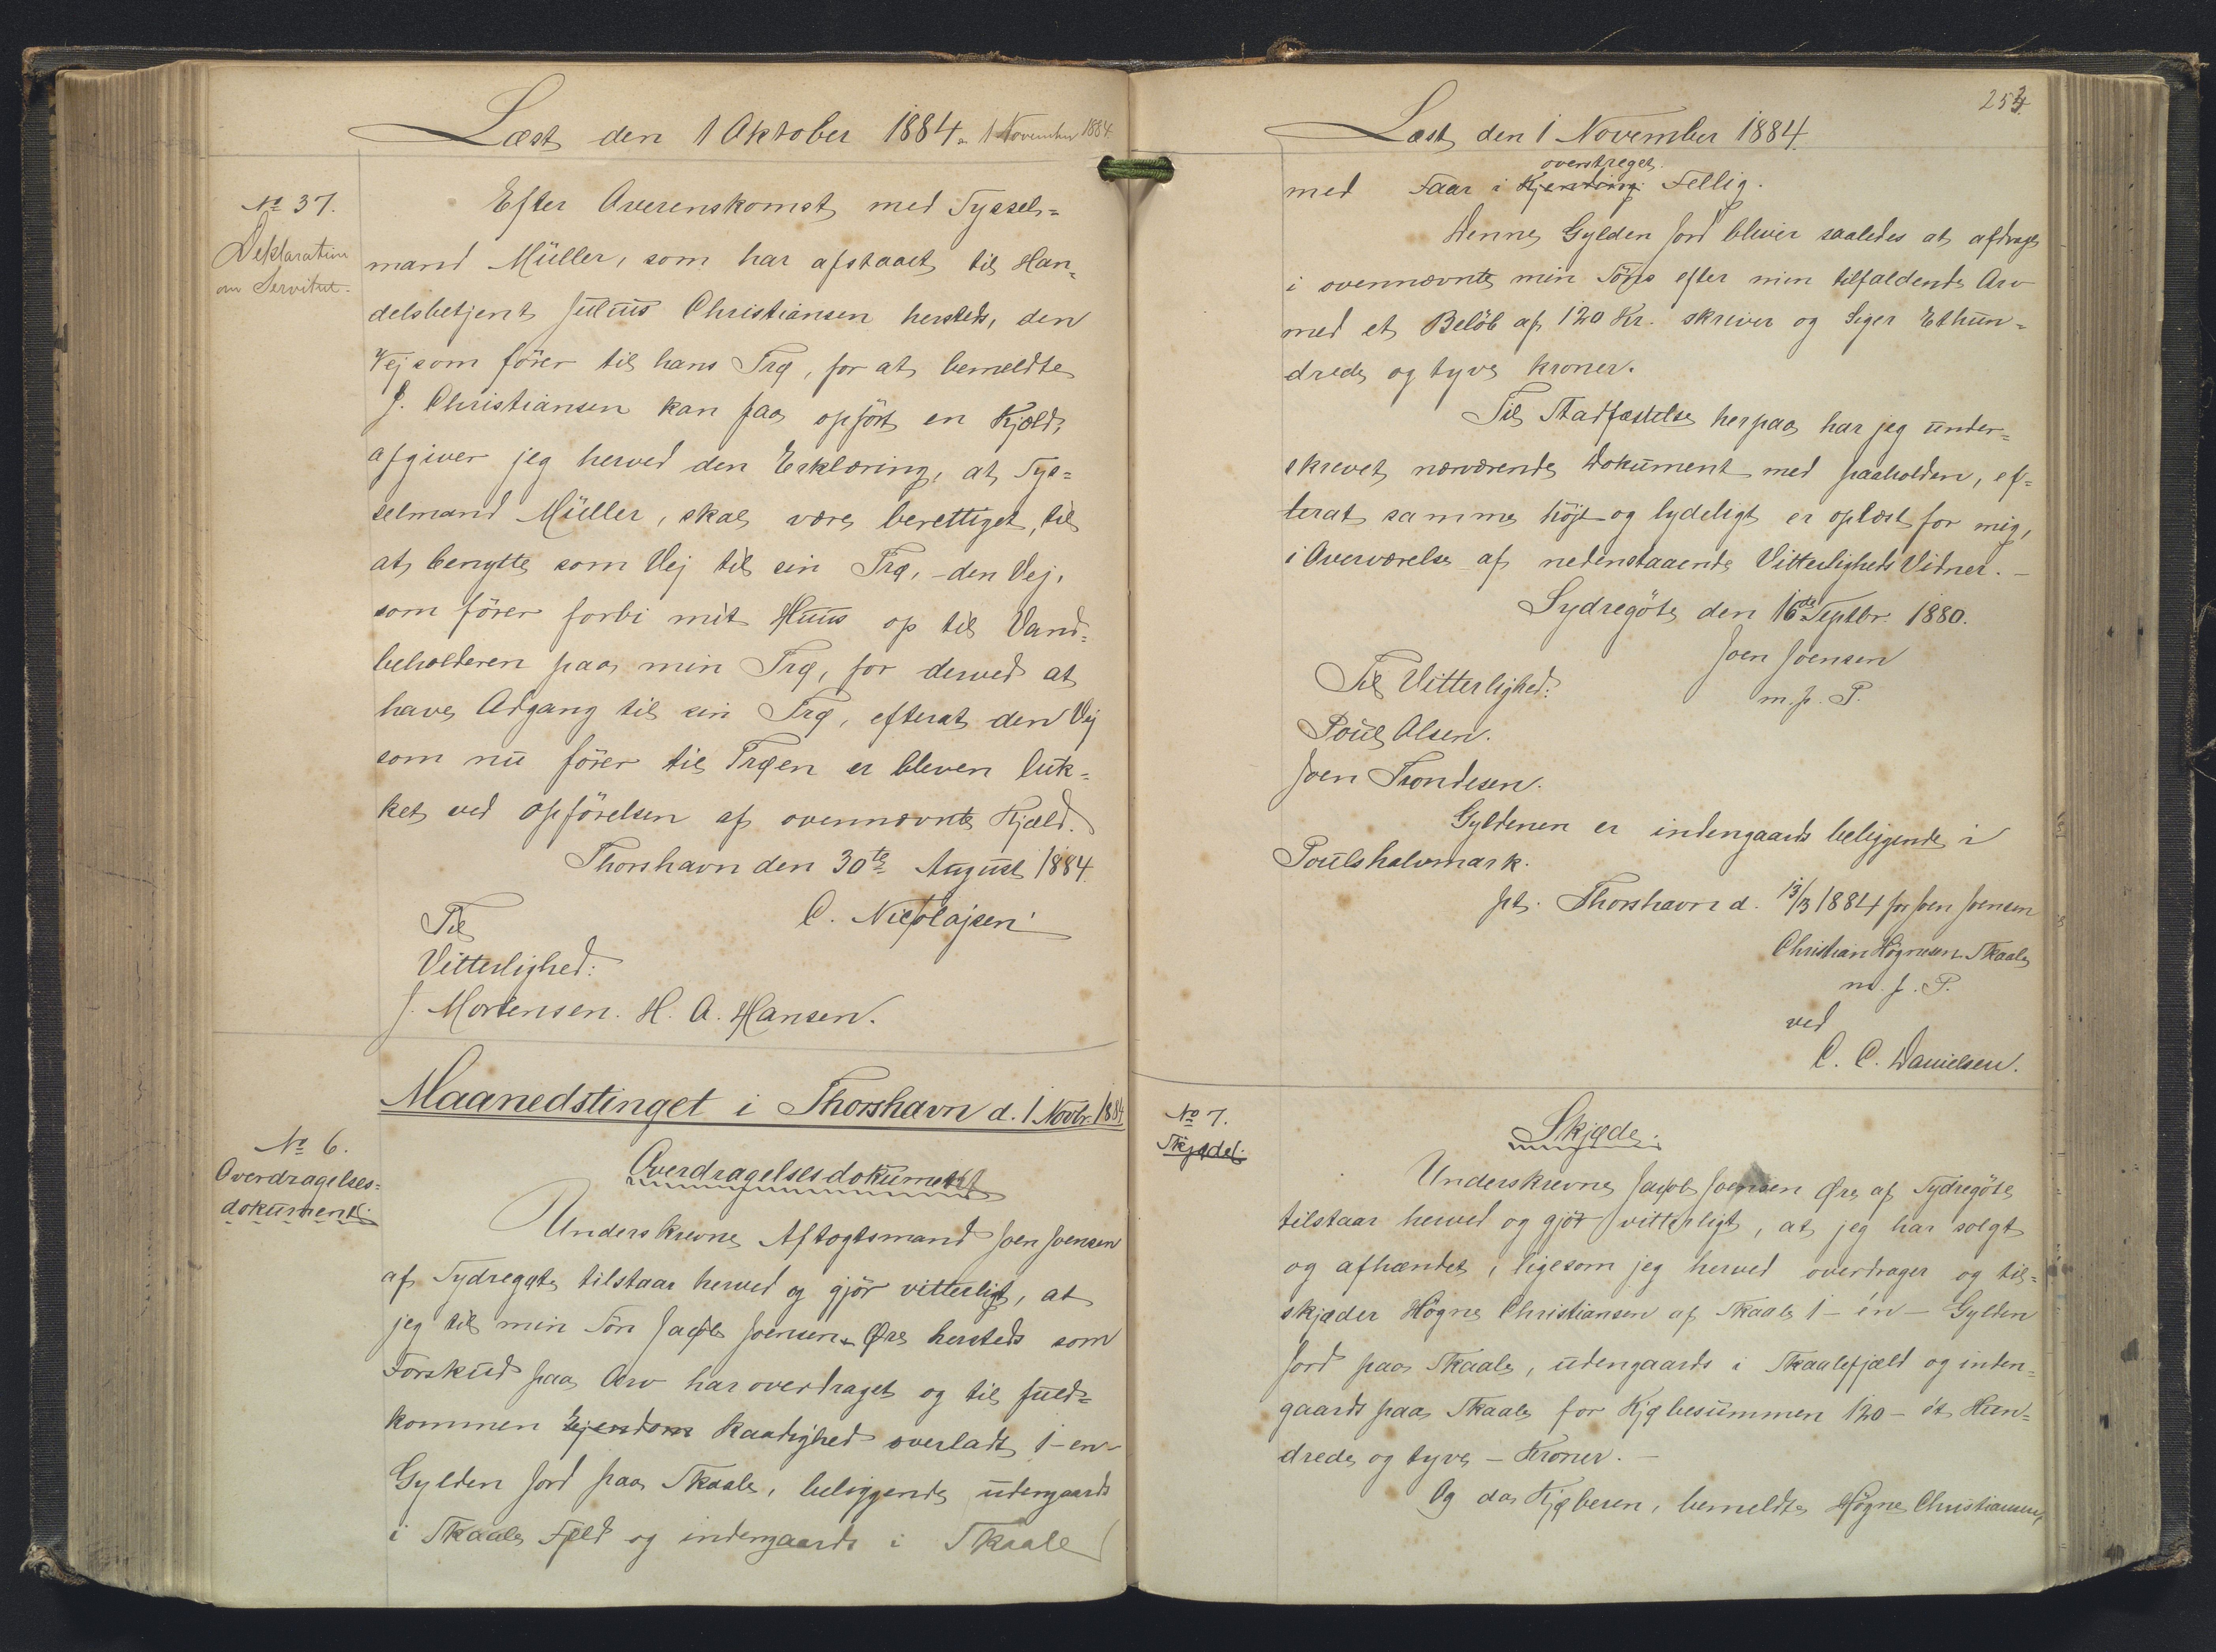 Læst den 1 Oktober 1884 - 1 November 1884
№ 37.
Deklaration
om Servitut.
Efter Overenskomst med Syssel=
mand Müller, som har afstaaet til Han=
delsbetjent Julius Christiansen hersteds, den
Vej som fører til hans Trø, for at bemeldte
J. Christiansen kan faa opført en Kjæld,
afgiver jeg herved den Erklæring, at Sys=
selmand Müller, skal være berettiget, til
at benytte som Vej til sin Trø, - den Vej,
som fører forbi mit Huus op til Vand=
beholderen paa min Trø, for derved at
have Adgang til sin Trø, efterat den Vej
som nu fører til Trøen er bleven luk=
ket ved Opførelsen af ovennævnte Kjæld.
Thorshavn den 30te August 1884.
C. Nicolajsen
Til
Vitterlighed:
J. Mortensen. H. A. Hansen.
Maanedstinget i Thorshavn d. 1 Novbr. 1884
№ 6.
Overdragelses=
dokument.
Overdragelsesdokument
Underskrevne Aftogtsmand Joen Joensen
af Sydregøte tilstaar herved og gjør vitterligt, at
jeg til min Søn Jacob Joensen Øre hersteds som
Forskud paa Arv har overdraget og til fuld=
kommen Ejendom Raadighed overladt 1 - en -
Gylden Jord paa Skaale, beliggende udengaards
i Skaale Fjeld og indengaards i Skaale
253
Læst den 1 November 1884.
overstreget.
med Faar i Kjending Fellig.
Denne Gylden Jord bliver saaledes at afdrage
i ovennævnte min Søns efter min tilfaldende Arv
med et Beløb af 120 Kr. skriver og siger Ethun=
drede og tyve Kroner.
Til Stadfæstelse herpaa har jeg under=
skrevet nærværende Dokument med paaholden, ef=
terat samme højt og lydeligt er oplæst for mig,
i Overværelse af nedenstaaende Vitterligheds Vidner. -
Sydregøte den 16de Septbr. 1880.
Joen Joensen
m. p. P.
Til Vitterlighed:
Poul Olsen.
Joen Trondesen.
Gyldenen er indengaards beliggende i
Poulshalvmark.
pt. Thorshavn d. 13/3 1884 for Joen Joensen
Christian Høgnesen Skaale
m. p. P.
ved
C. C. Danielsen.
№ 7.
Skjøde.
Skjøde.
Underskrevne Jacob Joensen Øre af Sydregøte
tilstaar herved og gjør vitterligt, at jeg har solgt
og afhændet, ligesom jeg herved overdrager og til=
skjøder Høgne Christiansen af Skaale 1 - én - Gylden
Jord paa Skaale, udengaards i Skaalefjæld og inden=
gaards paa Skaale for Kjøbesummen 120 - ét Hun=
drede og tyve - Kroner. -
Og da Kjøberen, bemeldte Høgne Christiansen,